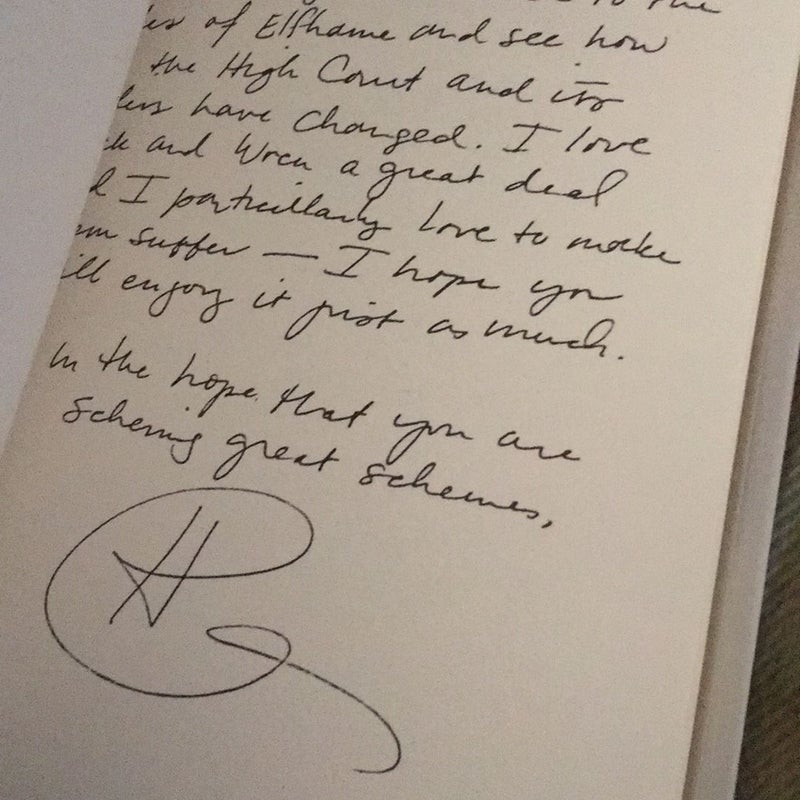 to the
of Elfhame and see how
the High Court and its
have changed. I love
and Wren a great deal
I particularly love to make
suffer — I hope you
enjoy it just as much.
In the hope that you are
scheming great schemes,
H